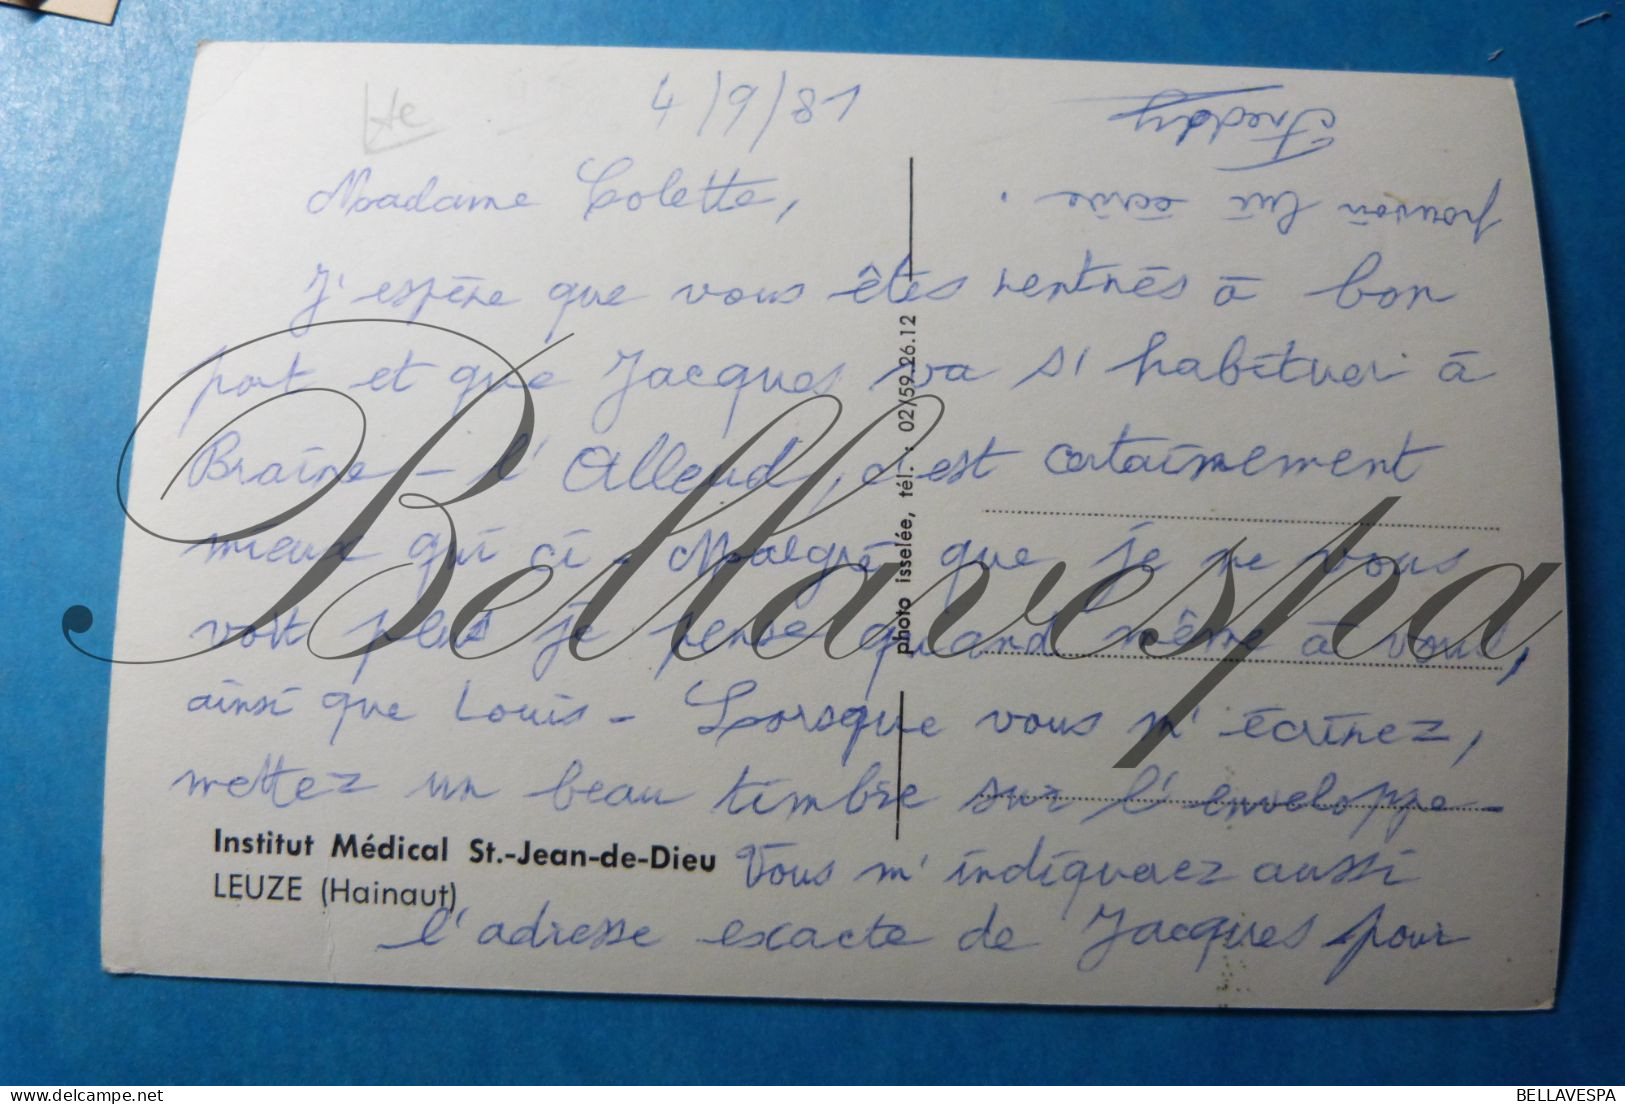 4/9/81
Madame Colette,
J'espère que vous êtes rentrés à bon
port et que Jacques va s'habituer à
Braine-l'Alleud, c'est certainement
mieux qui ci - Malgré que je ne vous
voit plus je pense quand même à vous,
ainsi que Louis - Lorsque vous m'écrirez,
mettez un beau timbre sur l'enveloppe -
Vous m'indiquerez aussi
l'adresse exacte de Jacques pour
pouvoir lui écrire.
Freddy
Institut Médical St.-Jean-de-Dieu
LEUZE (Hainaut)
photo isselée, tél. : 02/59.26.12
Bellavespa
BELLAVESPA